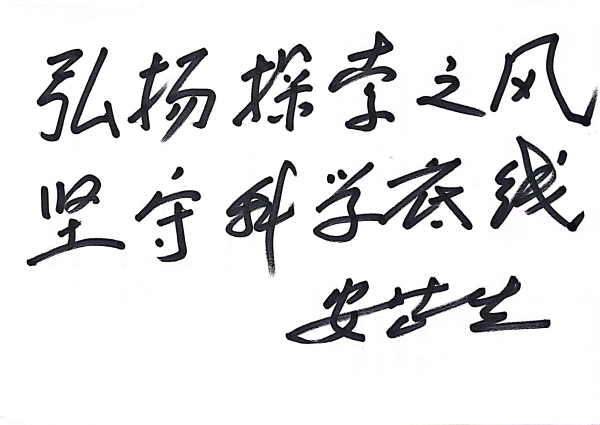 弘扬探索之风
坚守科学底线
安芷生